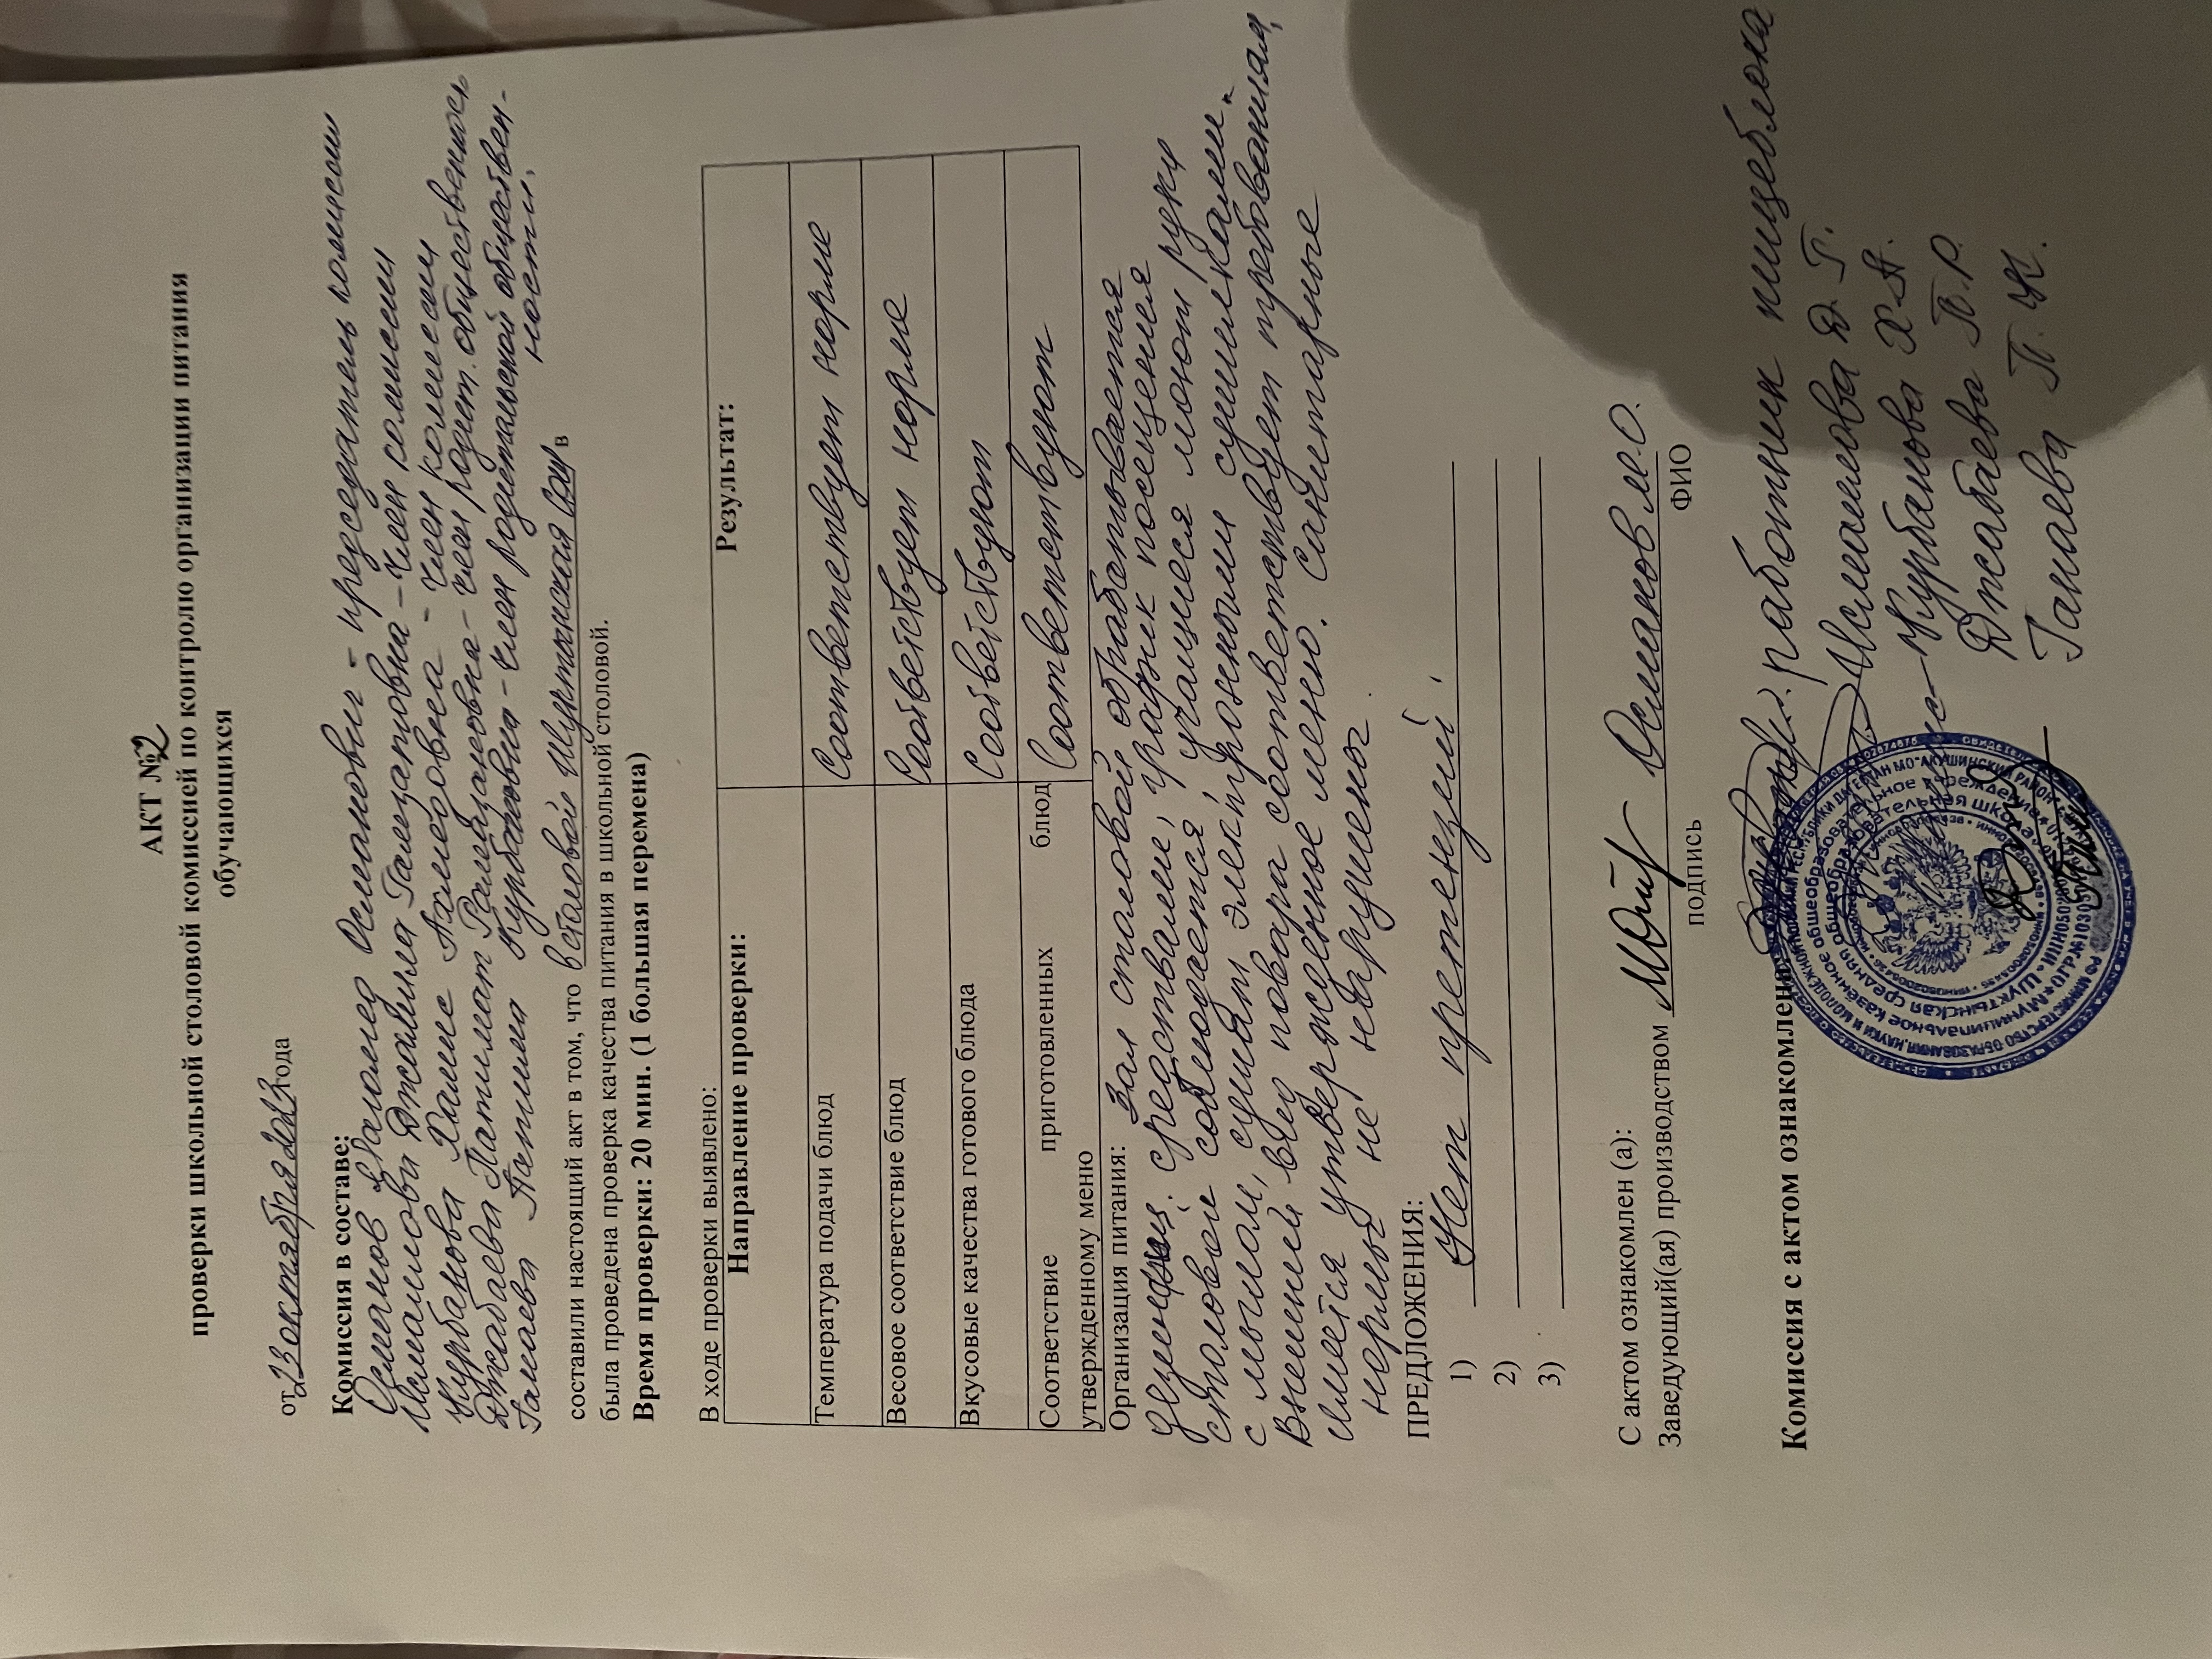 АКТ №2
проверки школьной столовой комиссией по контролю организации питания
обучающихся
от 23 октября 2023 года
Комиссия в составе:
Османов Магомед Османович - председатель комиссии
Исмаилова Джамиля Гамзатовна - член комиссии
Курбанова Хамис Ахмедовна - член комиссии
Джабаева Патимат Рамазановна - член родит. общественность
Гапаева Патима Курбановна - член родительской обществен-
ности.
составили настоящий акт в том, что в столовой Шуктынская СОШ в
была проведена проверка качества питания в школьной столовой.
Время проверки: 20 мин. (1 большая перемена)
В ходе проверки выявлено:
Направление проверки: Результат:
Температура подачи блюд Соответствует норме
Весовое соответствие блюд Соответствует норме
Вкусовые качества готового блюда Соответствуют
Соответствие приготовленных блюд Соответствуют
утвержденному меню
Организация питания: Зал столовой обрабатывается
средствами, график посещения
столовой соблюдается, учащиеся моют руки
с мылом, сушат электрожными сушилками.
Внешний вид повара соответствует требованиям,
имеется утвержденное меню. Санитарные
нормы не нарушены.
ПРЕДЛОЖЕНИЯ:
1) Нет претензий.
2)
3)
С актом ознакомлен (а):
Заведующий(ая) производством Османов М.О.
подпись ФИО
Комиссия с актом ознакомлена: работник пищеблока
Исмаилова Д. Г.
Курбанова Х А.
Джабаева П.Р.
Гапаева П. К.